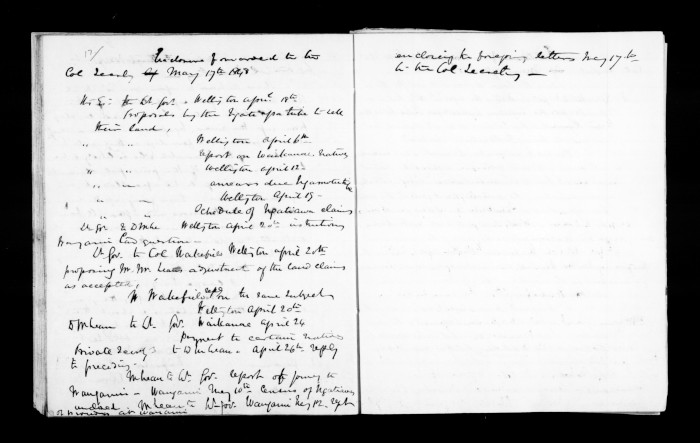 13/
Enclosure forwarded to the
Col Secrety May 17th 1848
His Ex: the Lt Gov. Wellington April 10th
Proposals by the Ngate to sell
their land,
" " Wellington April 6th
" " report on Waikanae natives
" " Wellington April 12th
" " arrears due
" Wellington April 15 -
" " Schedule of Ngatiawa claims
Lt Gov to D McLean Wellington April 20th instructions
Wanganui land question -
Lt Gov. to Col Wakefield Wellington April 20th
proposing Mr McLeans adjustment of the land claims
as accepted,
W Wakefield reply on the same subject
Wellington April 20th
D McLean to Lt Gov. Waikanae April 24
Payment to certain natives
Private Secy to D McLean - April 26th reply
to preceding.
McLean to Lt. Gov. report of journey to
Wanganui - Wanganui May 10th Census of Ngatiawa
enclosed. McLean to Lt-Gov. Wanganui May 12 report
of progress at Wanganui
enclosing the foregoing letters May 17th
to the Col Secretary -